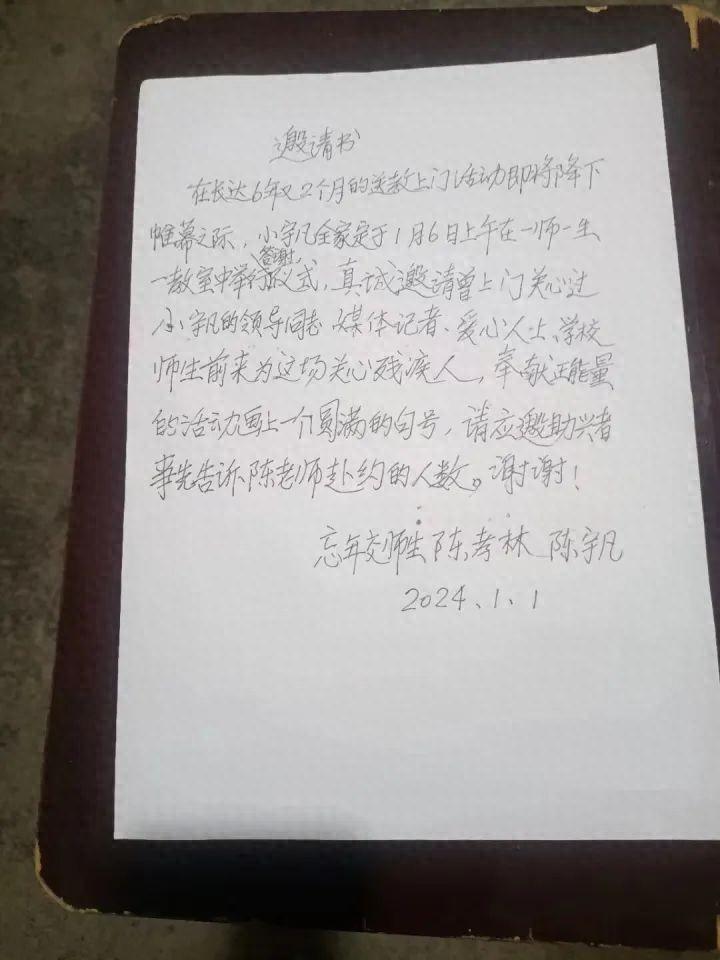 邀请书
在长达6年又2个月的送教上门活动即将降下
帷幕之际，小宇凡全家定于1月6日上午在一师一生
一教室中举行答谢仪式，真诚邀请曾上门关心过
小宇凡的领导同志、媒体记者、爱心人士、学校
师生前来为这场关心残疾人，奉献正能量
的活动画上一个圆满的句号，请应邀助兴者
事先告诉陈老师赴约的人数。谢谢！
忘年交师生陈孝林 陈宇凡
2024、1、1